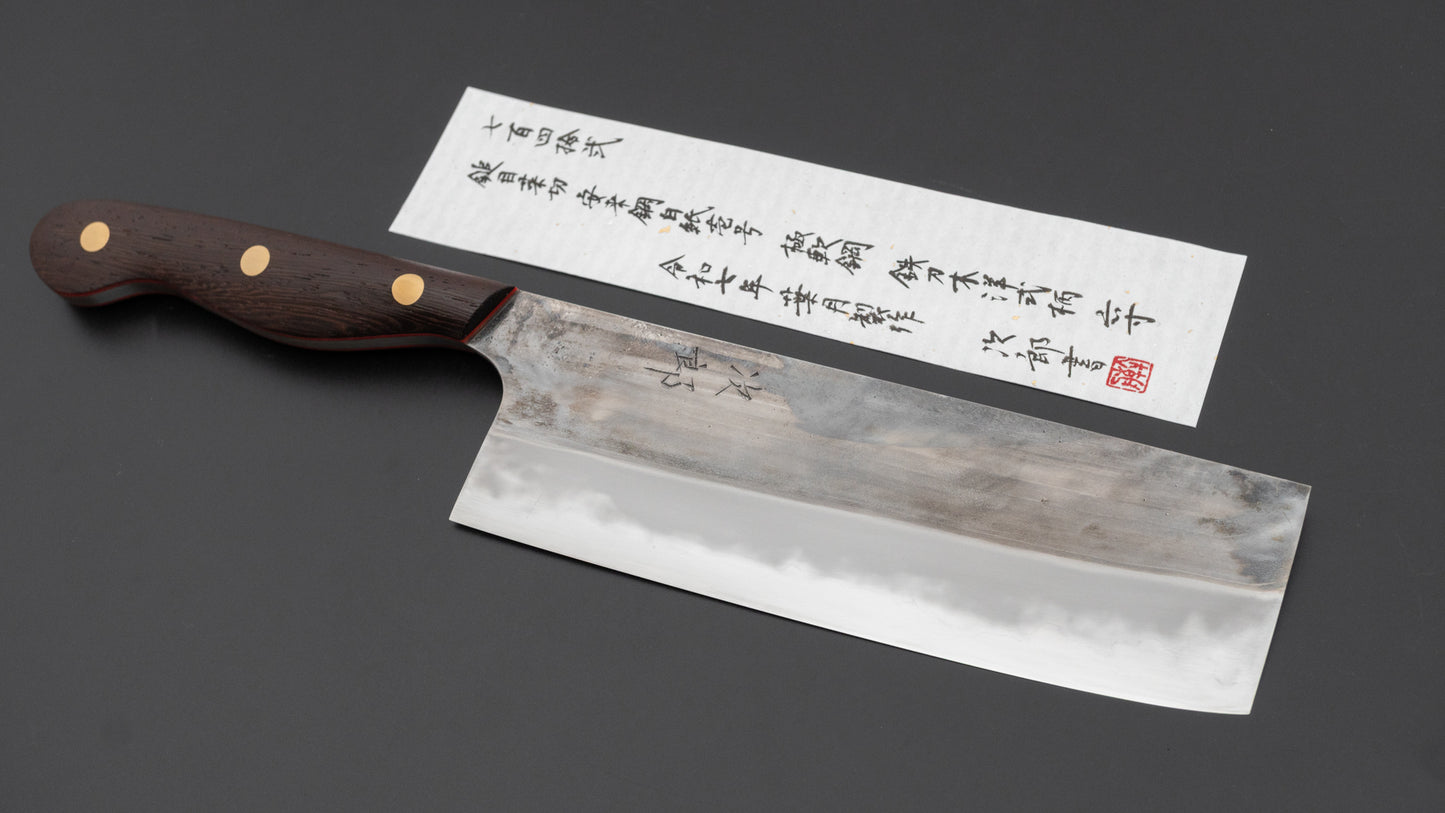 七百四拾弐
鎚目菜切 安来鋼白紙壱号 極軟鋼 鉄刀木洋式柄 六寸
令和七年 葉月製作 次郎書
次郎